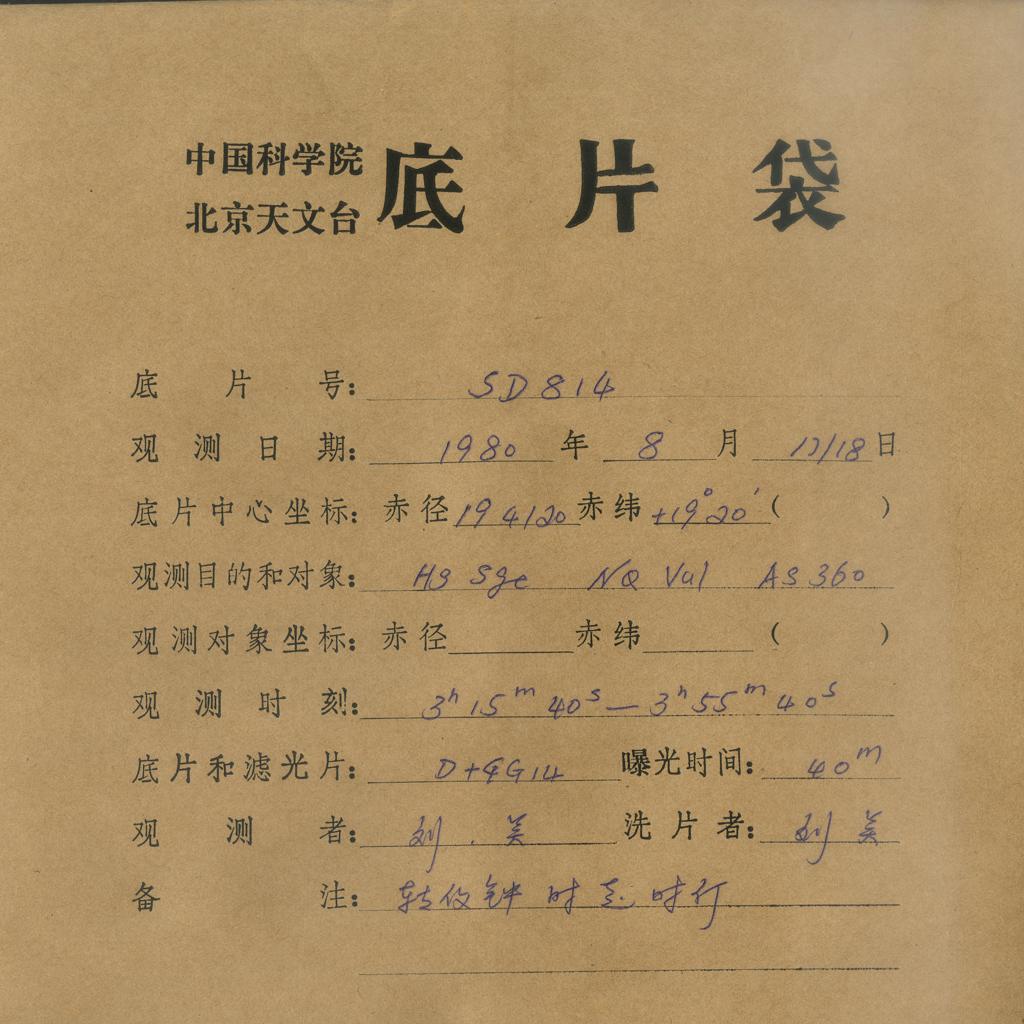 中国科学院
北京天文台
底片袋
底片号: SD814
观测日期: 1980 年 8 月 17/18 日
底片中心坐标: 赤径 194120 赤纬 +19°20′ ( )
观测目的和对象: HS Sge NQ Vul AS 360
观测对象坐标: 赤径 赤纬 ( )
观测时刻: 3h 15m 40s — 3h 55m 40s
底片和滤光片: D+GG14 曝光时间: 40m
观测者: 刘. 美 洗片者: 刘 美
备注: 转仪钟时走时行